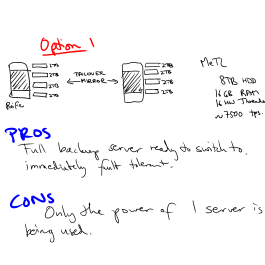 Option 1
2TB
2TB
2TB
2TB
FAILOVER
MIRROR
2TB
2TB
2TB
2TB
MeTL
8TB HDD
16GB RAM
16 HW Threads
~7500 tps.
PROS
Full backup server ready to switch to.
immediately fault tolerant.
CONS
Only the power of 1 server is
being used.